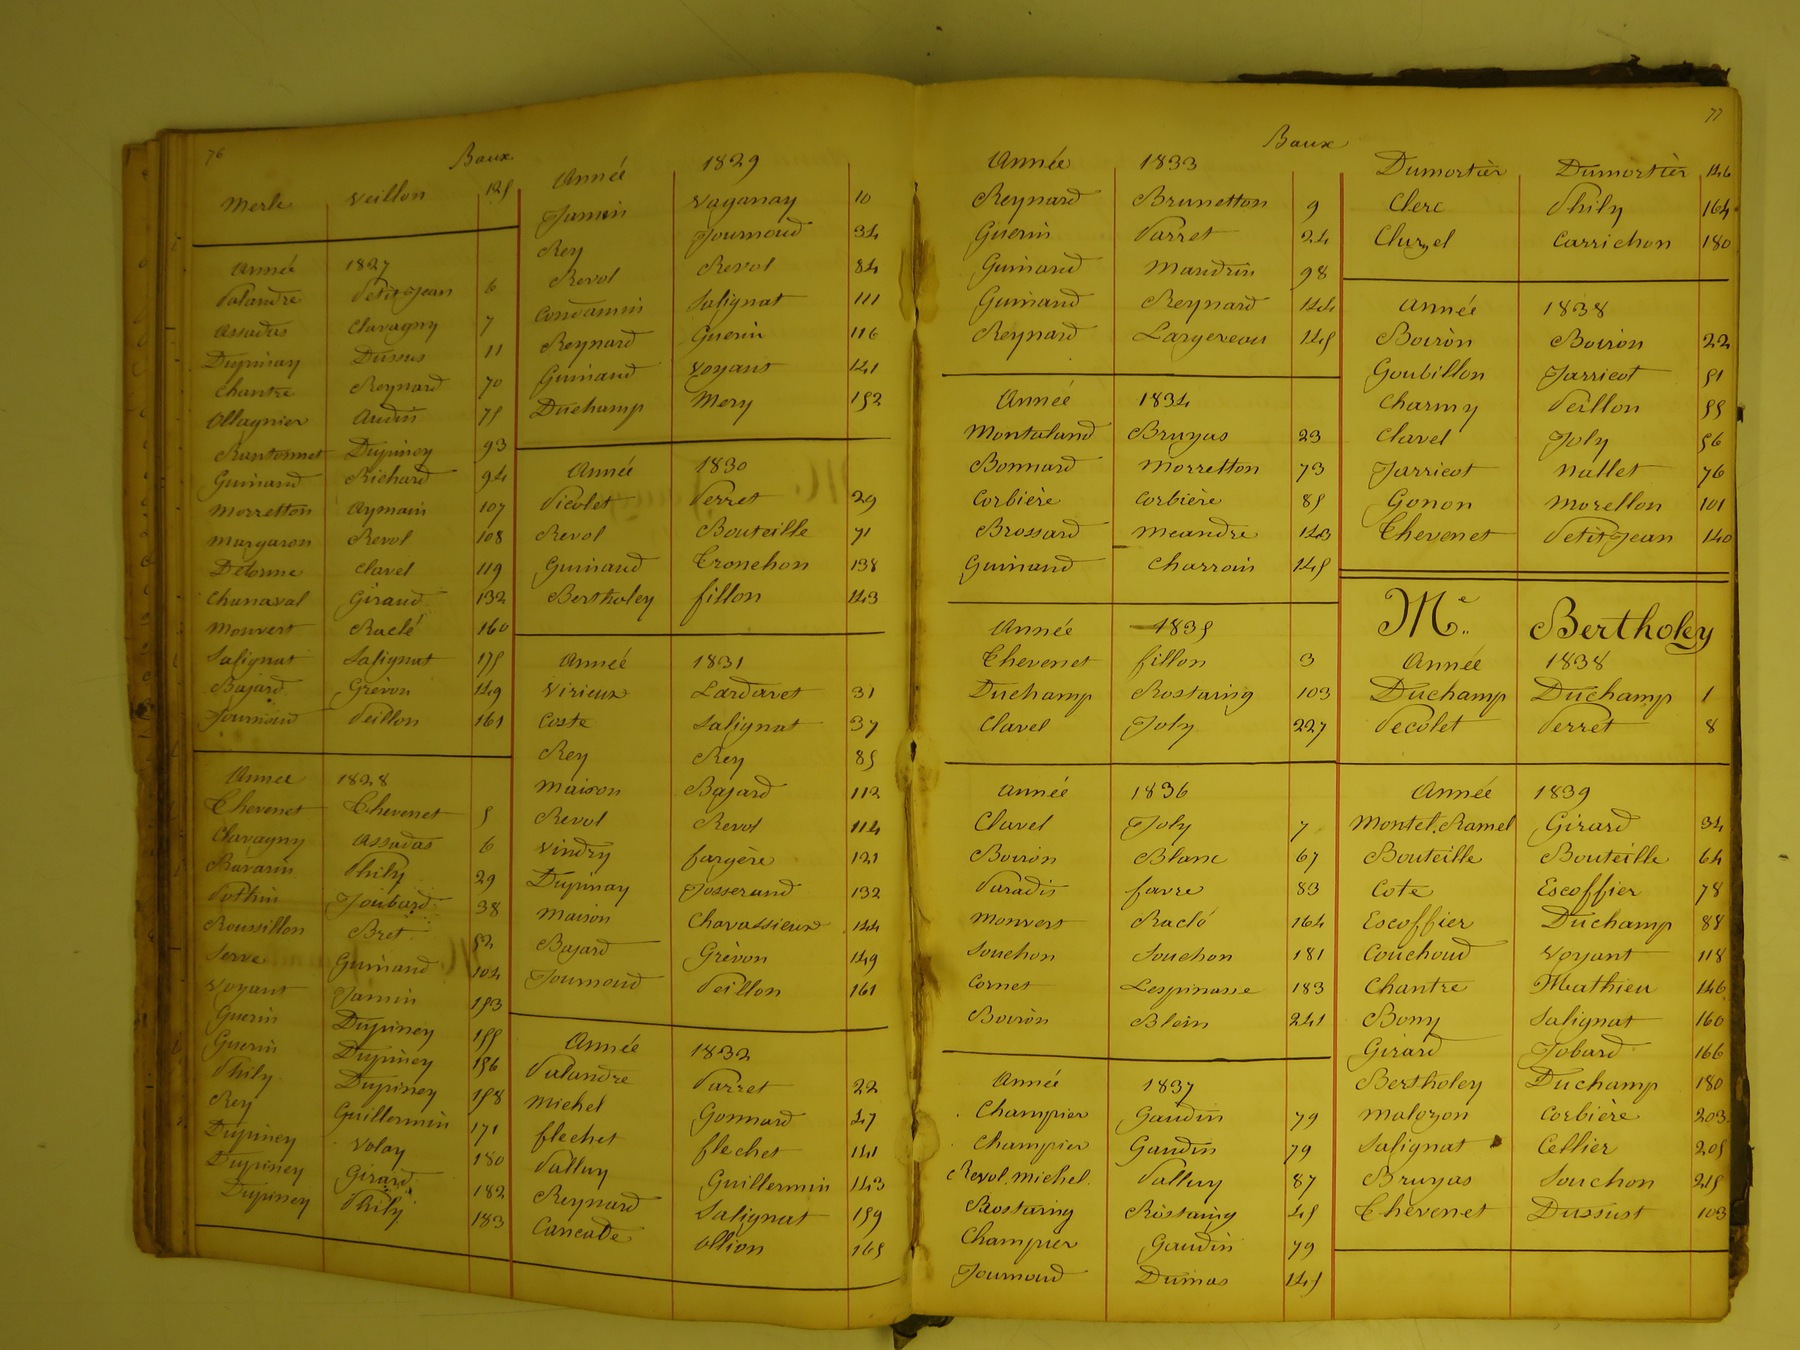 76
Baux
Merle Veillon 125
Année 1827
Palandre Petitjean 6
Assadas Clavagny 7
Dupinay Dussus 11
Chantre Reynard 70
Ollagnier Audin 75
Rantonnet Dupiney 93
Guinand Richard 94
Morretton Aymain 107
Margaron Revol 108
Delorme Clavel 119
Chanaval Giraud 132
Monvert Raclé 160
Salignat Salignat 175
Bajard Grévon 149
Journoud Peillon 161
Année 1828
Thevenet Thevenet 5
Clavagny Assadas 6
Bavarin Phily 29
Pothin Joubard 38
Roussillon Bret 52
Serve Guinand 104
Voyant Jamin 153
Guerin Dupiney 155
Guerin Dupiney 156
Phily Dupiney 158
Rey Guillermin 171
Dupiney Volay 180
Dupiney Girard 182
Dupiney Phily 183
Année 1829
Jamin Vaganay 10
Rey Journoud 34
Revol Revol 84
Condamin Salignat 111
Reynard Guerin 116
Guinand Voyant 141
Duchamp Mery 152
Année 1830
Picolet Perret 29
Revol Bouteille 71
Guinand Tronchon 138
Bertholey fillon 143
Année 1831
Virieux Lardaret 31
Coste Salignat 37
Rey Rey 85
Maison Bajard 112
Revol Revol 114
Vindry fargère 121
Dupinay Josserand 132
Maison Chavassieux 144
Bajard Grévon 149
Journoud Peillon 161
Année 1832
Palandre Parret 22
Michel Gonnard 47
flechet flechet 141
Palluy Guillermin 143
Reynard Salignat 159
Cancade Ollion 165
77
Baux
Année 1833
Reynard Brunetton 9
Guerin Parret 24
Guinand Mandrin 98
Guinand Reynard 144
Reynard Largereau 145
Année 1834
Montaland Bruyas 23
Bonnard Morretton 73
Corbière Corbière 85
Brossard Meandre 143
Guinand Charroin 145
Année 1835
Thevenet fillon 3
Duchamp Rostaing 103
Clavel Joly 227
Année 1836
Clavel Joly 7
Boiron Blanc 67
Paradis favre 83
Monvert Raclé 164
Souchon Souchon 181
Cornet Lespinasse 183
Boiron Blein 241
Année 1837
Champier Gaudin 79
Champier Gaudin 79
Revol, Michel Palluy 87
Rostaing Rostaing 45
Champier Gaudin 79
Journoud Dumas 145
Dumortièr Dumortièr 146
Clerc Phily 164
Cluzel Carrichon 180
Année 1838
Boiron Boiron 22
Goubillon Jarricot 51
Charmy Peillon 55
Clavel Joly 56
Jarricot Nallet 76
Gonon Morellon 101
Thevenet Petitjean 140
Me Bertholey
Année 1838
Duchamp Duchamp 1
Pecolet Perret 8
Année 1839
Montel, Ramel Girard 34
Bouteille Bouteille 64
Cote Escoffier 78
Escoffier Duchamp 88
Couchoud Voyant 118
Chantre Mathieu 146
Bony Salignat 160
Girard Jobard 166
Bertholey Duchamp 180
Malozon Corbière 203
Salignat Cellier 205
Bruyas Souchon 215
Thevenet Dussust 103